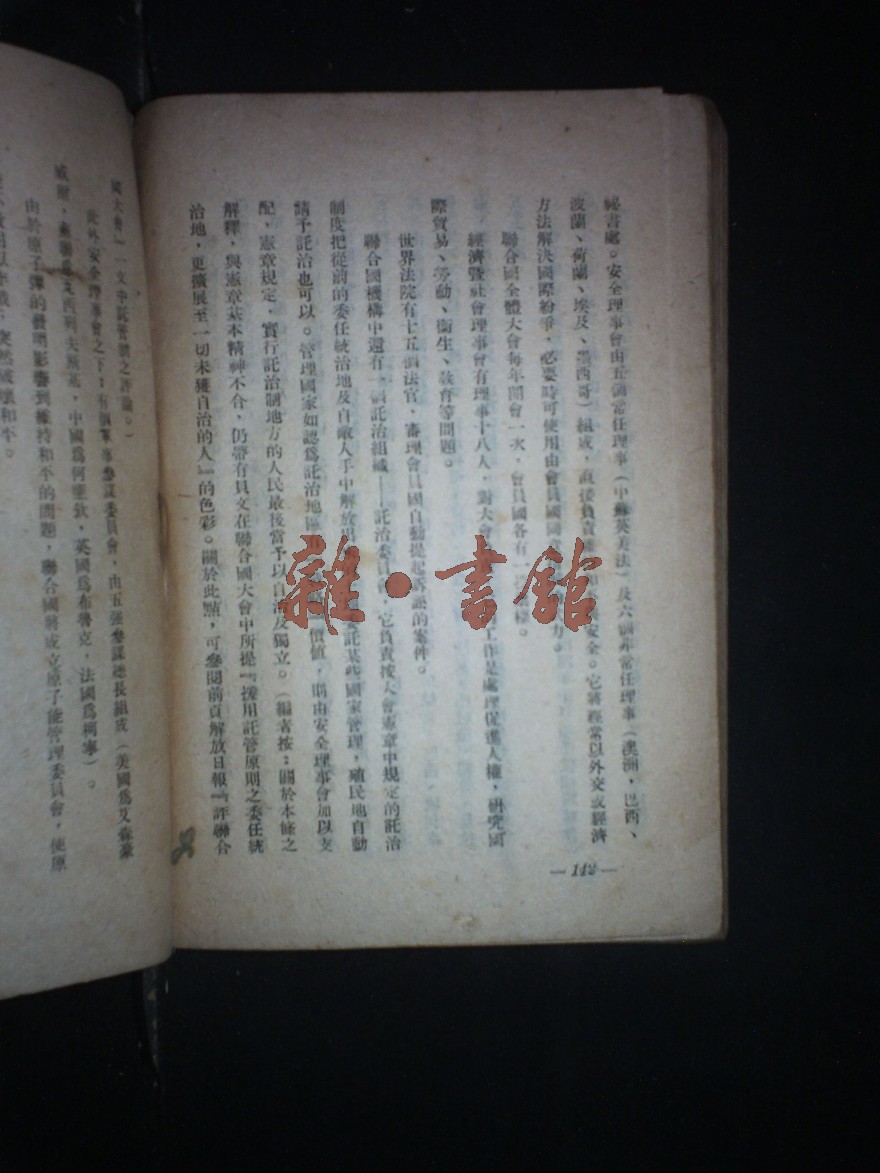 秘書處。安全理事會由五個常任理事（中蘇英美法）及六個非常任理事（澳洲，巴西、
波蘭、荷蘭、埃及、墨西哥）組成，直接負責安全。它將經常以外交或經濟
方法解決國際紛爭，必要時可使用由會員國力。
聯合國全體大會每年開會一次，會員國各有一。
經濟暨社會理事會有理事十八人，對大會工作是處理保護人權，研究國
際貿易、勞動、衛生、教育等問題。
世界法院有十五個法官，審理會員國自動提起訴訟的案件。
聯合國機構中還有一個託治組織——託治委員，它負責按大會憲章中規定的託治
制度把從前的委任統治地及自敵人手中解放出委託某些國家管理，殖民地自動
請予託治也可以。管理國家如認為託治地區價值，則由安全理事會加以支
配，憲章規定，實行託治制地方的人民最後當予以自治及獨立。（編者按：關於本條之
解釋，與憲章基本精神不合，仍帶有貝文在聯合國大會中所提『援用託管原則之委任統
治地，更擴展至一切未獲自治的人』的色彩。關於此點，可參閱前頁解放日報『評聯合
—142—
國大會』一文中託管制之評論。）
此外安全理事會之下，有個軍事參謀委員會，由五強參謀總長組成（美國為艾森豪
威爾，蘇聯為，中國為何應欽，英國為布魯克，法國為柯寧）。
由於原子彈的發明影響到維持和平的問題，聯合國將成立原子能管理委員會，使原
突然破壞和平。
雜·書館